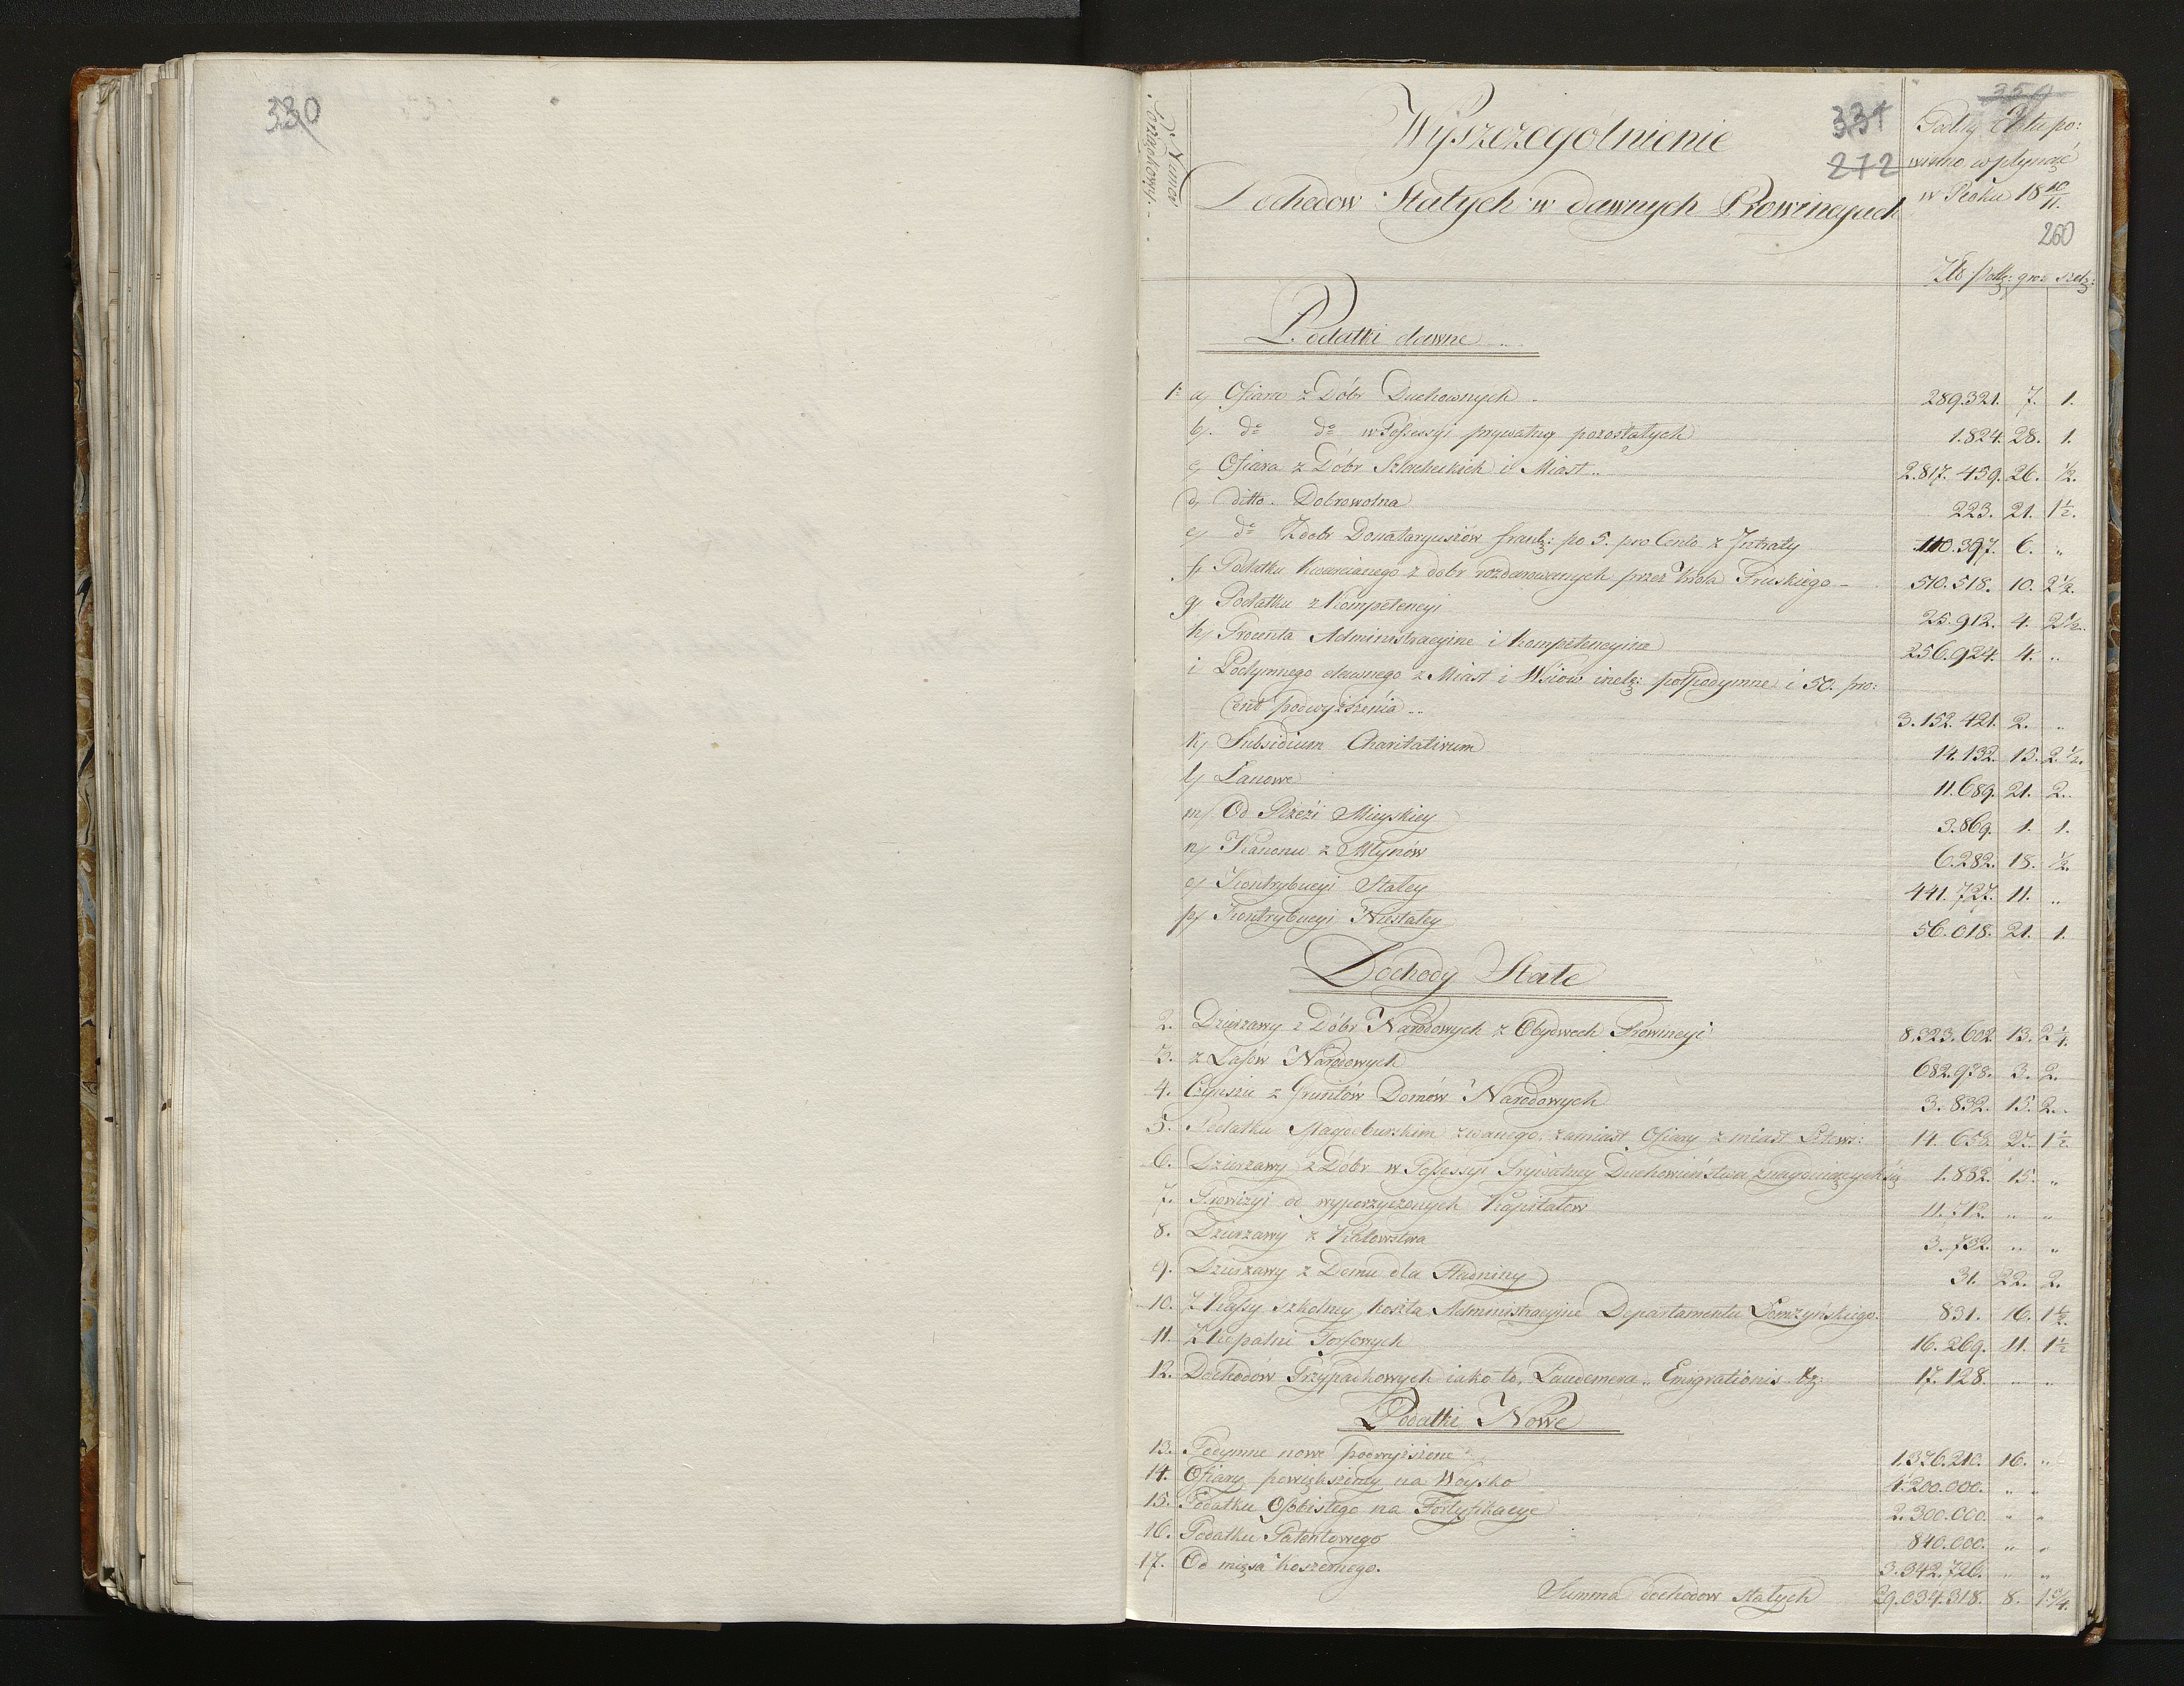 530
331
272
350
260
Numer
Porządkowy.
Wyszczegolnienie
Dochodow Stałych w dawnych Prowincyach
Podług Etatu po:
winno wpłynąć
w Roku 18 10/11.
Zło: polk: gro: szelą:
Podatki dawne
1. a, Ofiara z Dóbr Duchownych 289.321. 7. 1.
b, do do w Possessyi prywatney pozostałych 1.824. 28. 1.
c, Ofiara z Dóbr Szlacheckich i Miast 2.817.459. 26. 1/2.
d, ditto. Dobrowolna 223. 21. 1 1/2.
e, do Z dobr Donataryuszów franc: po 5. pro Cento z Intraty 110.397. 6. "
f, Podatku kwarcianego z dobr rozdarowanych przez Krola Pruskiego 510.518. 10. 2 1/2.
g, Podatku z Kompetencyi 25.912. 4. 2 1/2.
h, Procenta Administracyine i kompetencyine 256.924. 4. "
i Podymnego dawnego z Miast i Wsiow incl: połpodymne i 50. pro:
Cent podwyższenia 3.152.421. 2. "
k, Subsidium Charitativum 14.132. 15. 2 1/2.
l, Łanowe 11.689. 21. 2.
m, Od Rzezi Mieyskiey 3.869. 1. 1.
n, Kanonu z Młynów 6.282. 18. 1/2.
o, Kontrybucyi Stałey 441.727. 11. "
p, Kontrybucyi Niestałey 56.018. 21. 1.
Dochody Stałe
2. Dzierzawy z Dóbr Narodowych z Obydwoch Prowincyi 8.323.602. 13. 2 1/4.
3. z Lasów Narodowych 682.938. 3. 2.
4. Czynszu z Gruntów Domów Narodowych 3.832. 15. 2.
5. Podatku Magdeburskim zwanego, zamiast Ofiary z miast 14.658. 27. 1 1/2.
6. Dzierzawy z Dóbr w Possessyi Prywatney Duchowieństwa znayduiących się 1.832. 15. "
7. Prowizyi od wyporzyczonych Kapitałow 11.712. " "
8. Dzierzawy z Katowstwa 3.732. " "
9. Dzierzawy z Domu dla Stadniny 31. 22. 2.
10. Z Kassy szkolney koszta Administracyine Departamentu Łomżyńskiego. 831. 16. 1 1/2.
11. Z Kopalni Torfowych 16.269. 11. 1 1/2
12. Dochodów Przypadkowych iako to, Laudemera, Emigrationis &: 17.128. " "
Podatki Nowe
13. Podymne nowe podwyższone 1.376.210. 16. "
14. Ofiary powiększoney na Woysko 4.200.000. " "
15. Podatku Osobistego na Fortyfikacye 2.300.000. " "
16. Podatku Patentowego 840.000. " "
17. Od mięsa koszernego. 3.342.726. " "
Summa dochodow stałych 29.034.318. 8. 1 3/4.